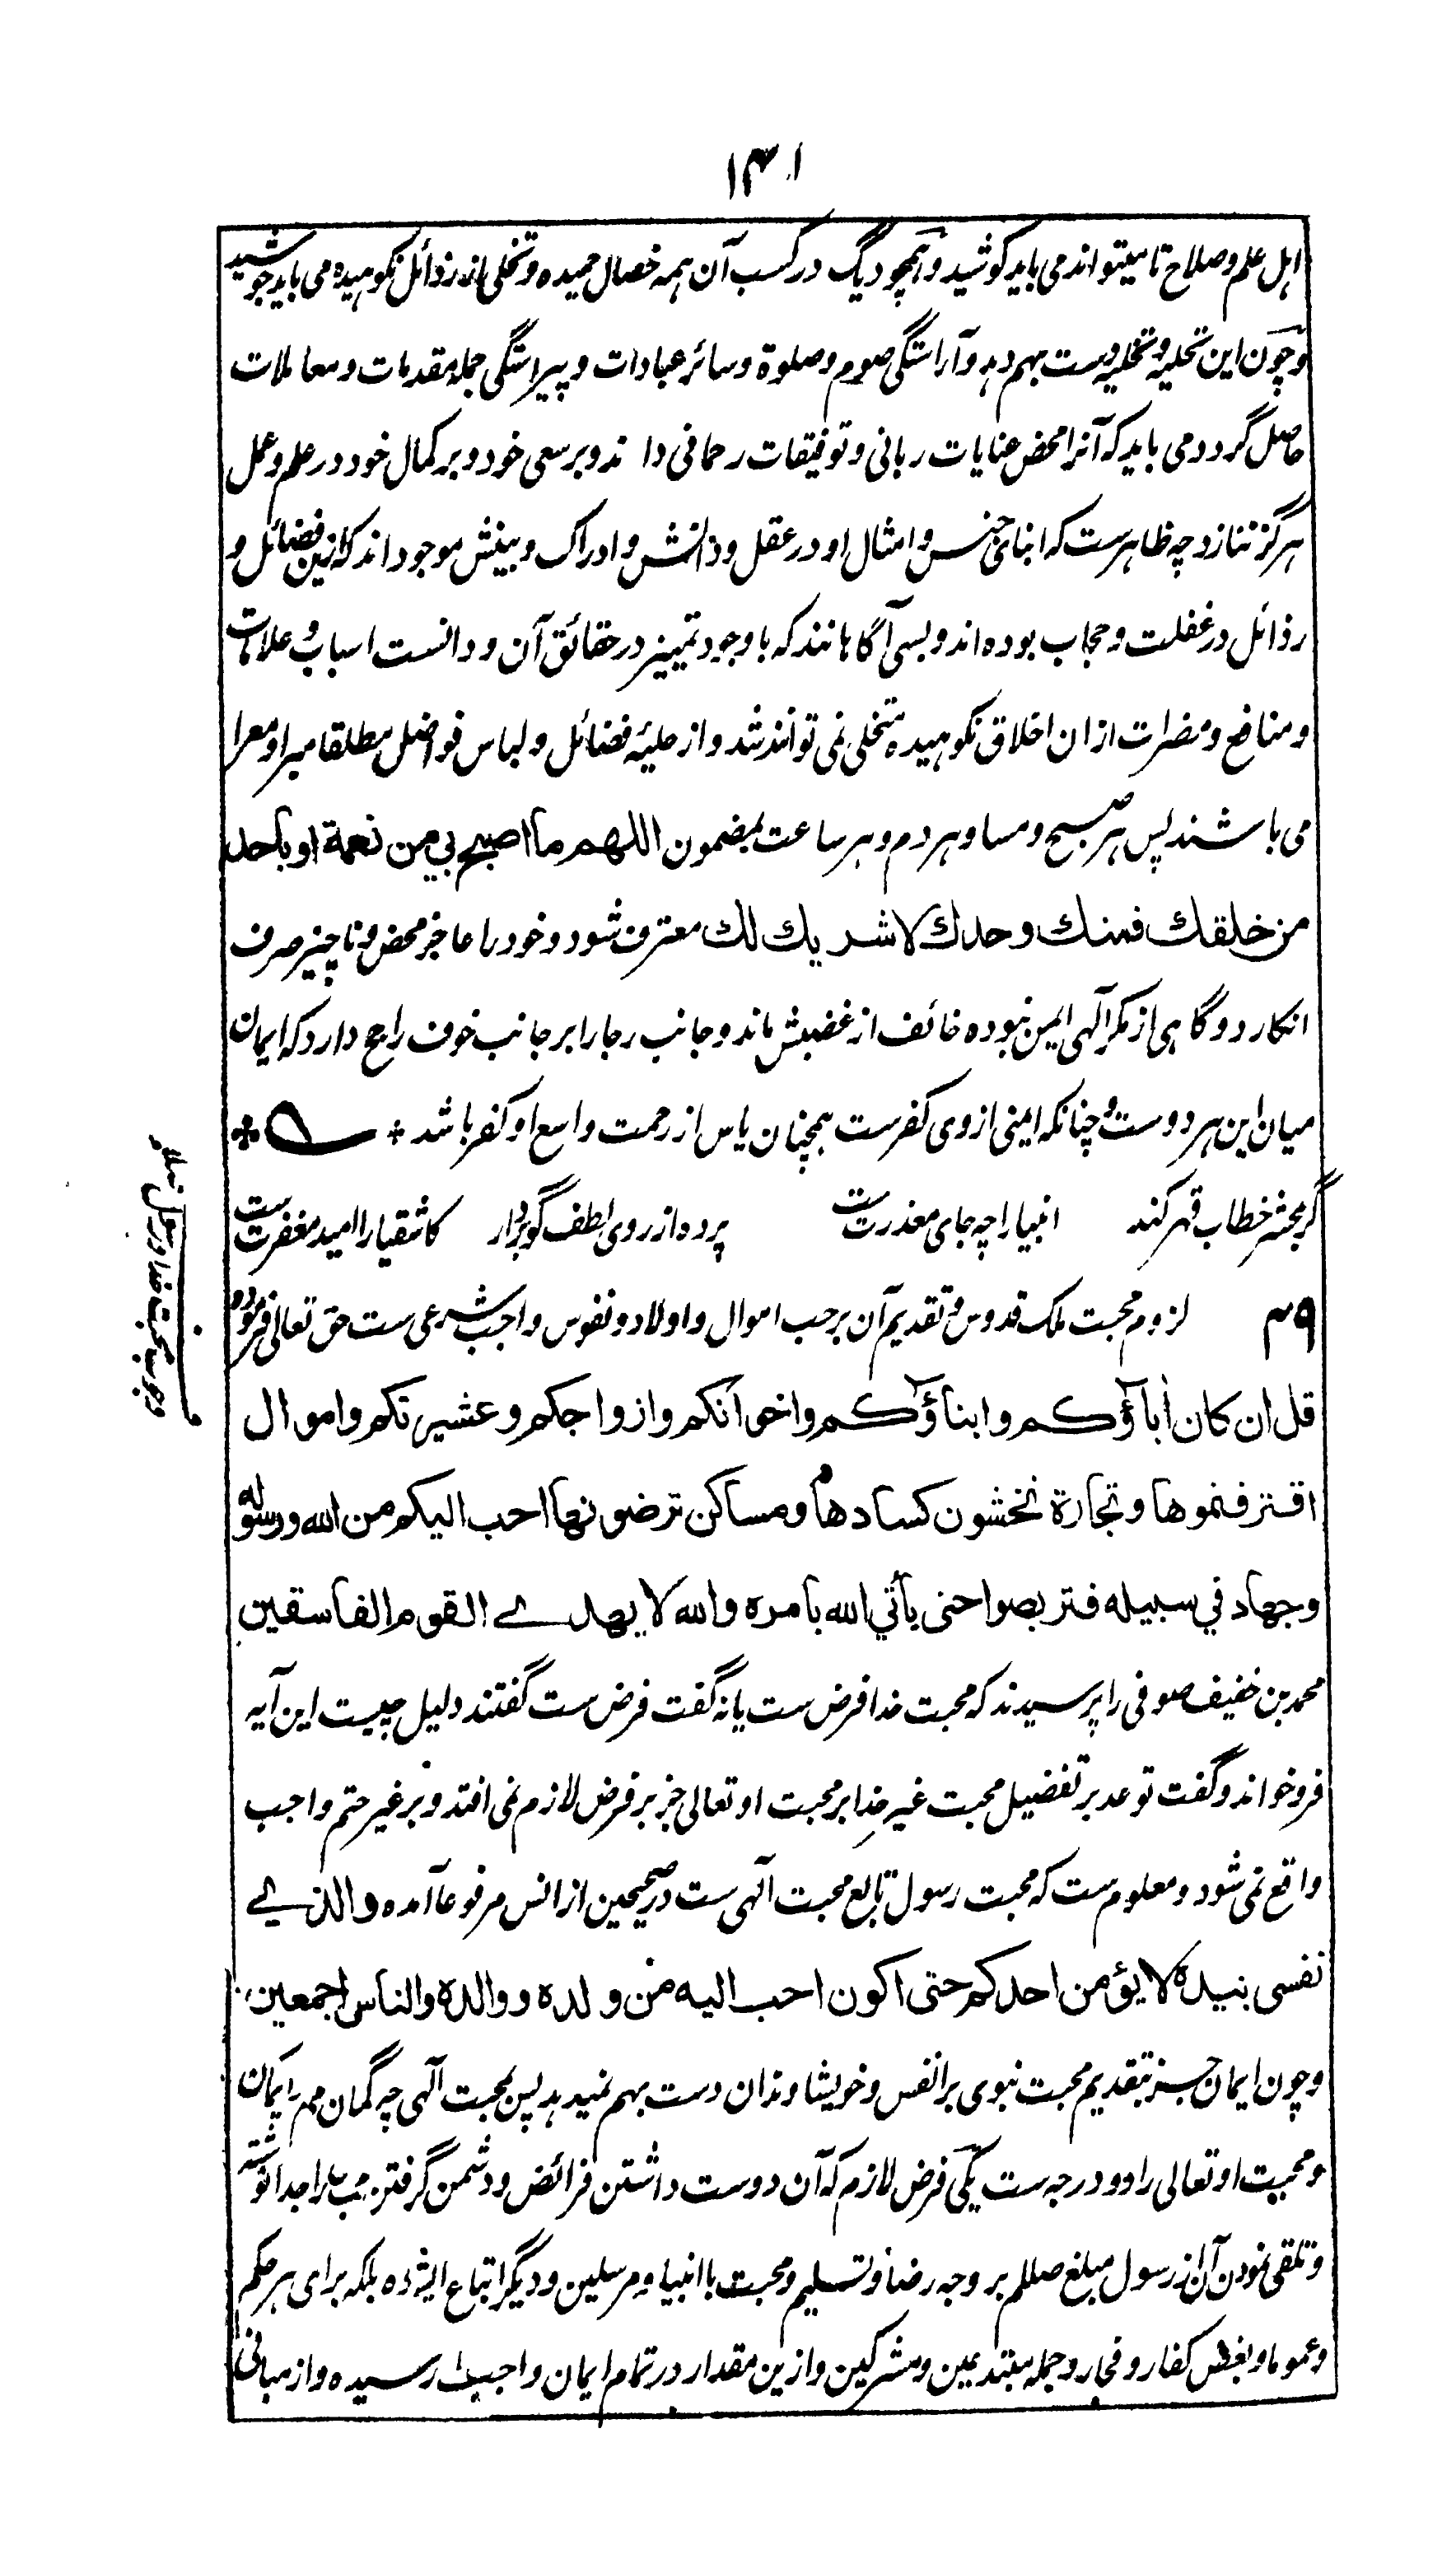 ۱۴۱
اہل علم و صلاح تا میتواند می باید کوشید و ہمچو دیگ در کسب آن ہمہ خصال حمیدہ و تخلی از رذائل نکوہیدہ می باید جوشید
و چون این تحلیہ و تخلیہ دست بہم دہد و آراستگی صوم و صلوة و سائر عبادات و پیراستگی جملہ مقدمات و معاملات
حاصل گردد می باید کہ آنرا محض عنایات ربانی و توفیقات رحمانی داند و بر سعی خود و بر کمال خود در علم و عمل
ہرگز ننازد چہ ظاہرست کہ ابنای جنس و امثال او در عقل و دانش و ادراک و بینش موجود اند کہ ازین فضائل و
رذائل در غفلت و حجاب بودہ اند و بسی آگاہانند کہ با وجود تمییز در حقائق آن و دانست اسباب و علامات
و منافع و مضرات ازان اخلاق نکوہیدہ متخلی نمی توانند شد و از حلیۂ فضائل و لباس فواضل مطلقا مبرا و معرا
می باشند پس ہر صبح و مسا و ہر دم و ہر ساعت بمضمون اللهم ما اصبح بي من نعمة او باحد
من خلقك فمنك وحدك لا شريك لك معترف شود و خود را عاجز محض و ناچیز صرف
انکارد و گاہی از مکر آلہی ایمن نبودہ خائف از غضبش ماند و جانب رجا را بر جانب خوف راجح دارد کہ ایمان
میان این ہر دوست و چنانکہ ایمنی از وی کفرست ہمچنان یاس از رحمت واسع او کفر باشد
گر بمحشر خطاب قہر کند انبیا را چہ جای معذرت ست پردہ از روی لطف گو بردار کاشقیا را امید مغفرت ست
۴۹ لزوم محبت ملک قدوس و تقدیم آن بر حب اموال و اولاد و نفوس واجب شرعی ست حق تعالی فرمودہ
قل ان كان أباؤكم وابناؤكم واخوانكم وازواجكم وعشيرتكم واموال
اقترفتموها وتجارة تخشون كسادها ومساكن ترضونها احب اليكم من الله ورسوله
وجهاد في سبيله فتربصوا حتى يأتي الله بامره والله لا يهدے القوم الفاسقين
محمد بن خفیف صوفی را پرسیدند کہ محبت خدا فرض ست یا نہ گفت فرض ست گفتند دلیل چیست این آیہ
فرو خواند و گفت توعد بر تفضیل محبت غیر خدا بر محبت او تعالی جز بر فرض لازم نمی افتد و بر غیر حتم واجب
واقع نمی شود و معلوم ست کہ محبت رسول تابع محبت آلہی ست در صحیحین از انس مرفوعا آمدہ والذے
نفسي بيده لا يؤمن احدكم حتى اكون احب اليه من ولده ووالده والناس اجمعين
و چون ایمان جز بتقدیم محبت نبوی بر انفس و خویشاوندان دست بہم نمیدہد پس بمحبت آلہی چہ گمان می رایکان
و محبت او تعالی را دو درجہ ست یکی فرض لازم کہ آن دوست داشتن فرائض و دشمن گرفتن
و تلقی نمودن آن از رسول مبلغ صللم بر وجہ رضا و تسلیم و محبت با انبیا و مرسلین و دیگر اتباع ایشان بلکہ برای ہر حکم
و عموما و بغض کفار و فجار و جملہ مبتدعین و مشرکین و ازین مقدار در تمام ایمان واجب رسیدہ و از مبانی
وجوب محبت خدا و رسول